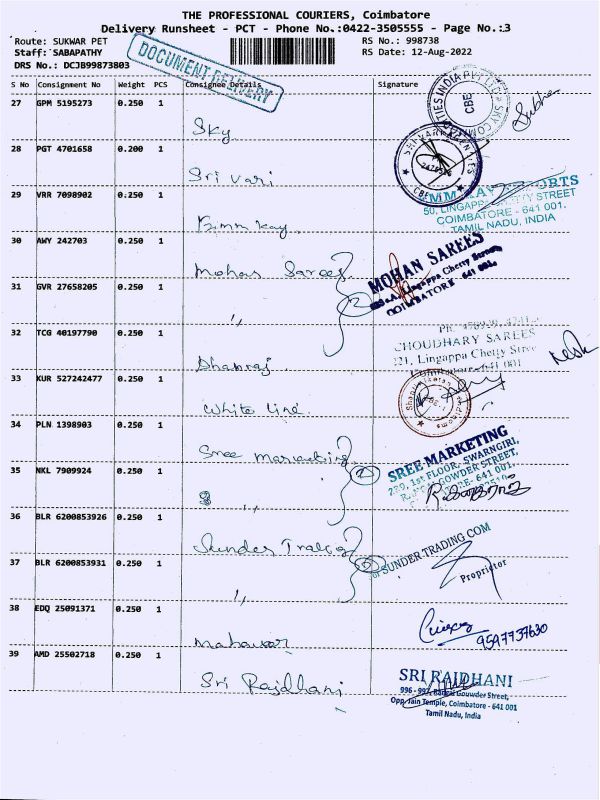 THE PROFESSIONAL COURIERS, Coimbatore
Delivery Runsheet - PCT - Phone No.:0422-3505555 - Page No.:3
Route: SUKWAR PET
RS No.: 998738
Staff: SABAPATHY
RS Date: 12-Aug-2022
DRS No.: DCJB99873803
DOCUMENT DELIVERY
S No Consignment No Weight PCS Consignee Details Signature
27 GPM 5195273 0.250 1
Sky
CBE
28 PGT 4701658 0.200 1
Sri Vari
CBE
29 VRR 7098902 0.250 1
Bimm Kay
50, LINGAPPA CHETTY STREET
COIMBATORE - 641 001.
TAMIL NADU, INDIA
30 AWY 242703 0.250 1
Mohan Sarees
MOHAN SAREES
Lingappa Chetty Street
COIMBATORE 641 001.
31 GVR 27658205 0.250 1
"
2
32 TCG 40197790 0.250 1
Dhanraj
CHOUDHARY SAREES
221, Lingappa Chetty Stre
Coimbatore-641 001
33 KUR 527242477 0.250 1
White Line.
34 PLN 1398903 0.250 1
Sree Marketing
SREE MARKETING
1st FLOOR, SWARNGIRI,
GOWDER STREET,
641 001.
35 NKL 7909924 0.250 1
"
2
36 BLR 6200853926 0.250 1
Sunder Trading
for SUNDER TRADING COM
Proprietor
37 BLR 6200853931 0.250 1
"
2
38 EDQ 25091371 0.250 1
Mahavar
9597737630
39 AMD 25502718 0.250 1
Sri Rajdhani
SRI RAJDHANI
996 - 997, Rangai Gouwder Street,
Opp. Jain Temple, Coimbatore - 641 001
Tamil Nadu, India